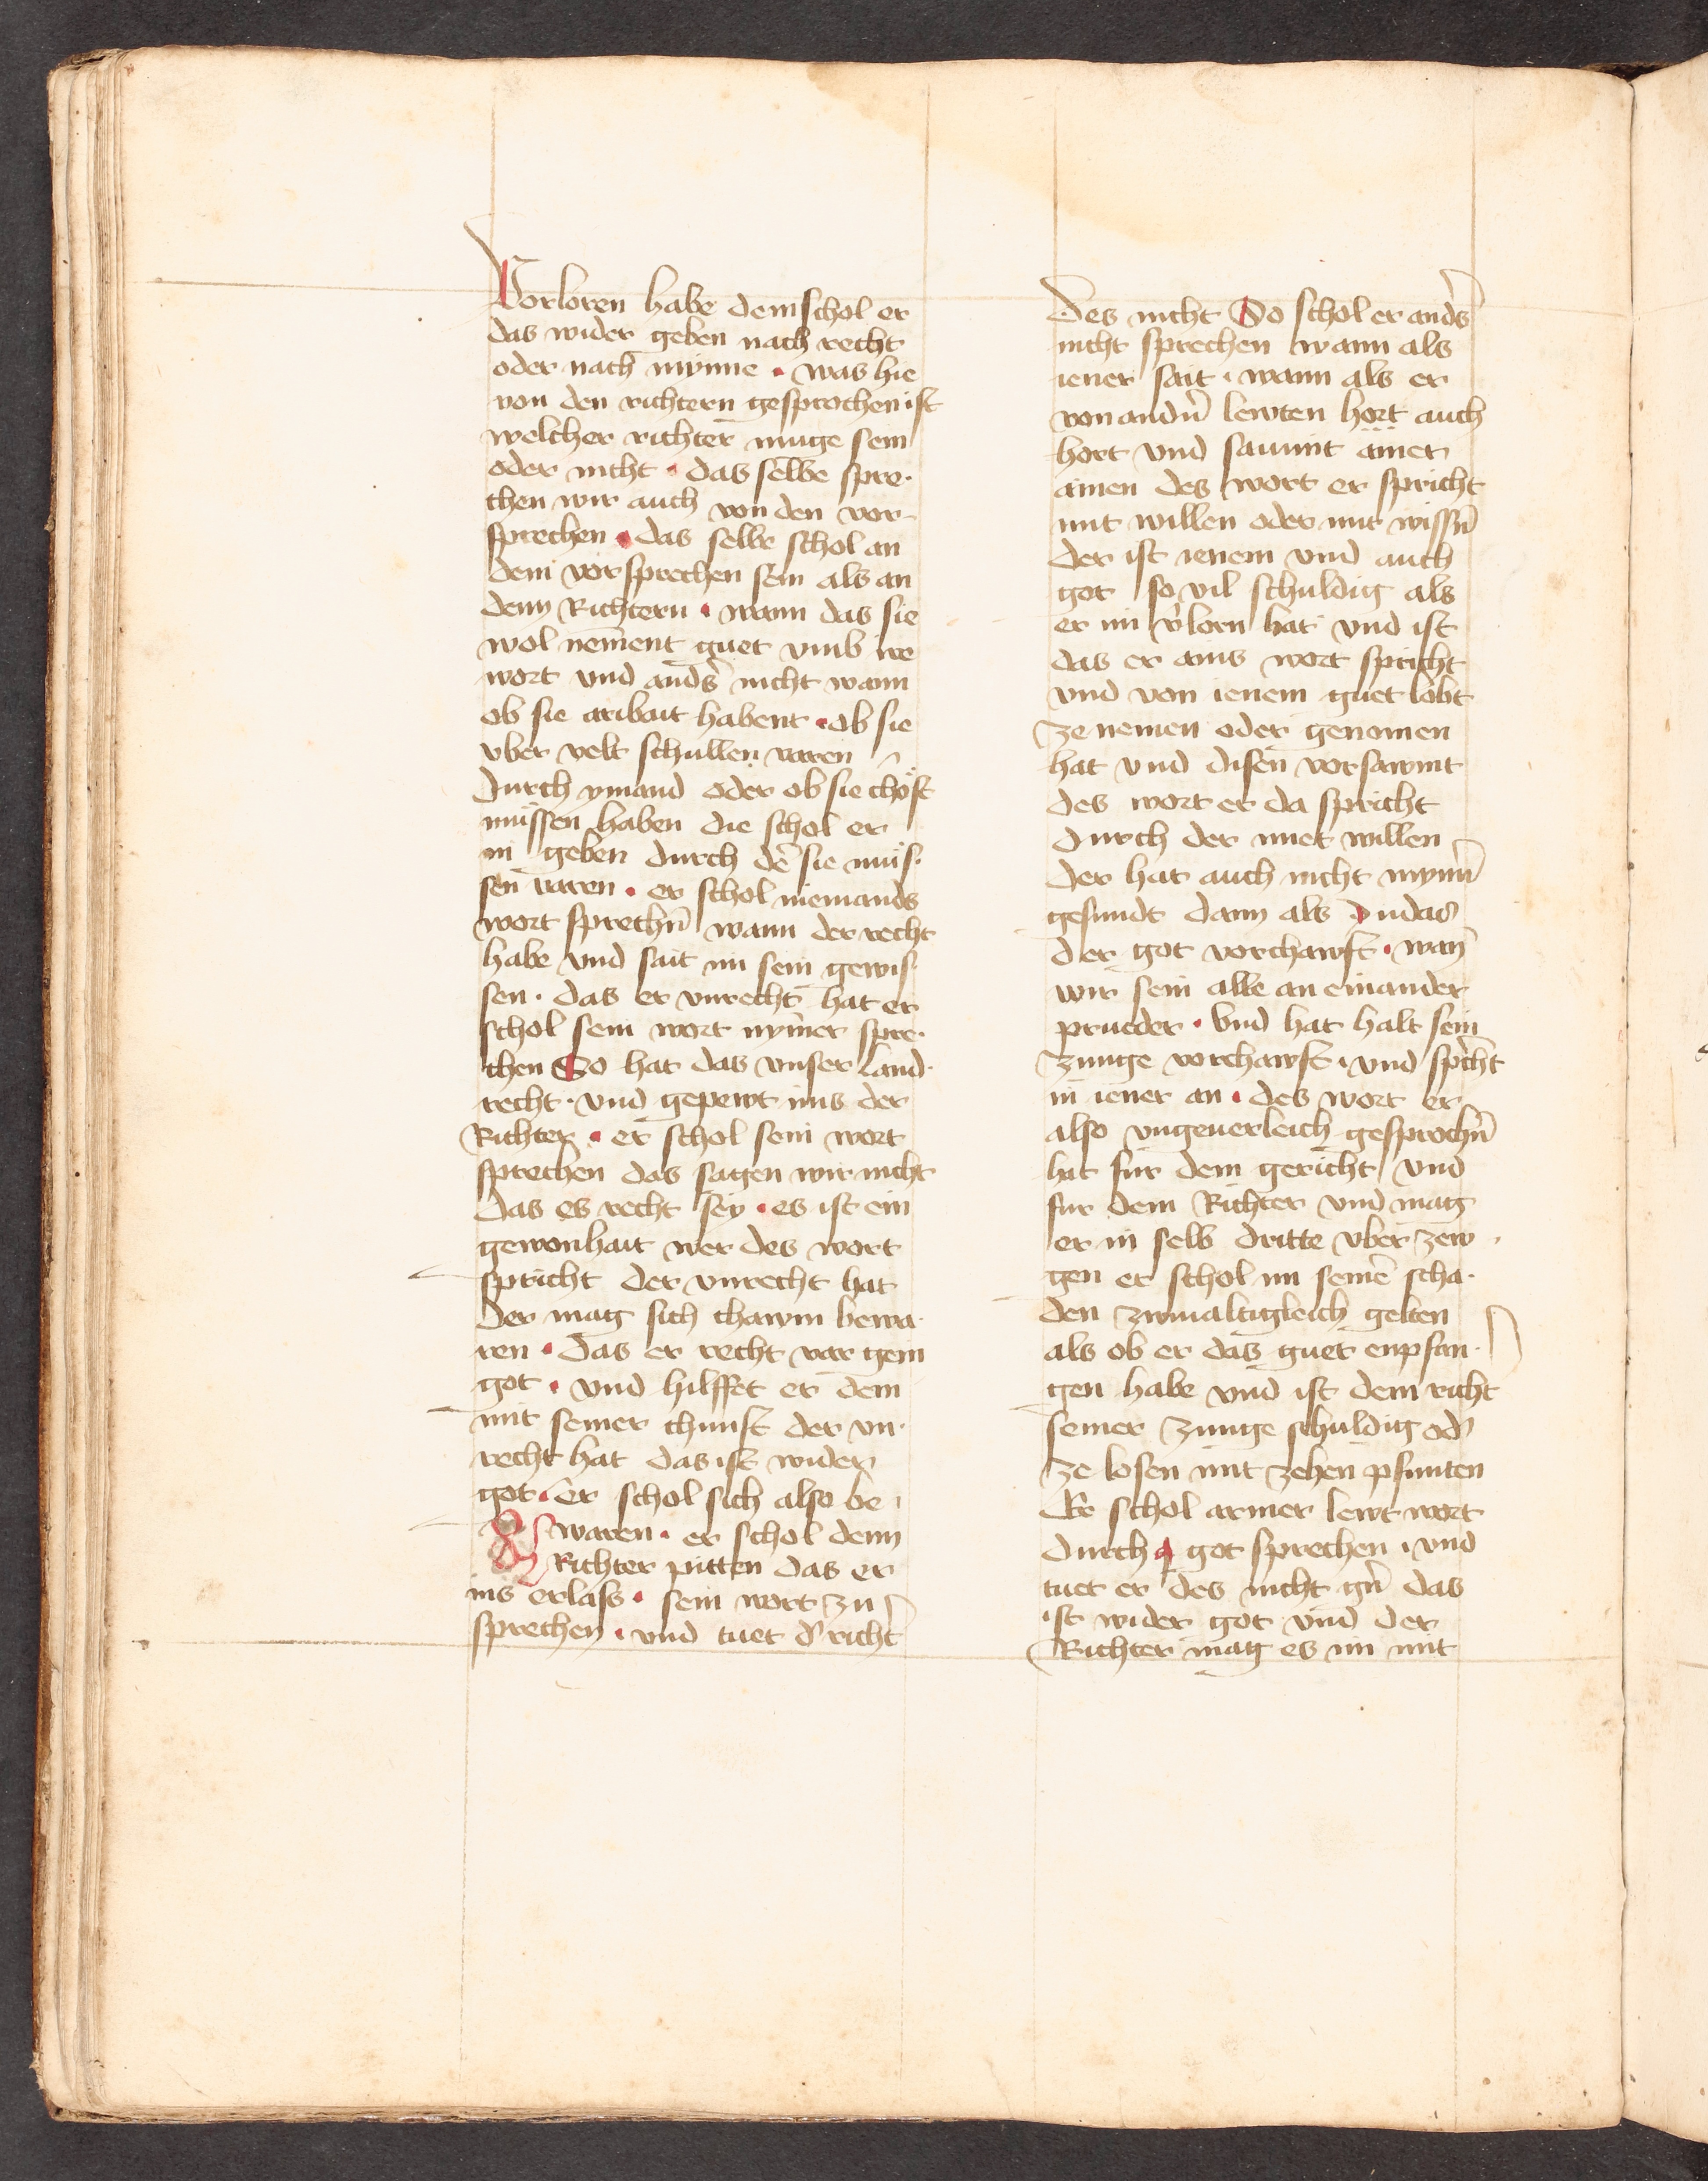 Vorloren habe dem schol er
das wider geben nach recht
oder nach mynne · was hie
von den richtern gesprochen ist
welcher richter muge sein
oder nicht · das selbe spre·
chen wir auch von den vor-
sprechen · das selbe schol an
dem vorsprechen sein als an
denn Richtern · wann das sie
wol nement guet vmb ire
wort vnd anders̄ nicht wann
ob sie aribait habent · ob sie
vber velt schullen varen
durch ymand oder ob sie chost
müssen haben die schol er
in geben durch dē sie müs·
sen varen · er schol niemands
wort sprechn̄ wann der recht
habe vnd sait im sein gewis·
sen · das er vnrecht hat er
schol sein wort nym̄er spre·
chen So hat das vnser Land·
recht · vnd gepewt ims der
Richter · er schol sein wort
sprechen das sagen wir nicht
das es recht sey · es ist ein
gewonhait wer des wort
spricht der vnrecht hat
der mag sich chawm bewa·
ren · das er recht var gein
got · vnd hilffet er dem
mit seiner chunst der vn·
recht hat das ist wider
got · er schol sich also be
waren · er schol denn
Richter pitten das er
ins erlass · sein wort zu
sprechen · vnd tuet d' richt'
des nicht So schol er ands̄
nicht sprechen wann als
iener sait · wann als er
von andn̄ lewten hört auch
hort vnd saumt ainer
ainen des wort er spricht
mit willen oder mit wissn̄
der ist ienem vnd auch
got so vil schuldig als
er im v̄lorn hat vnd ist
das er ains wort spricht
vnd von ienem guet lobt
ze nemen oder genomen
hat vnd disen vorsawmt
des wort er da spricht
durch der miet willen
der hat auch nicht mynn̄
gesundt dann als Judas
der got vorchawft · wan̄
wir sein alle an einander
prueder · Vnd hat halt sein
zunge vorchawft · vnd sp̄cht
in iener an · des wort er
also vngeuerleich gesprochn̄
hat fur dem gericht vnd
fur dem Richter vnd mag
er in selb dritte vber zew
gen er schol im seinē scha·
den zwinaltigleich gelten
als ob er das guet enpfan·
gen habe vnd ist dem richt'
seiner zunge schuldig od'
ze losen mit zehen pfunten
Er schol armer lewt wort
durch got sprechen · vnd
tuet er des nicht gn̄ das
ist wider got vnd der
Richter mag es im mit